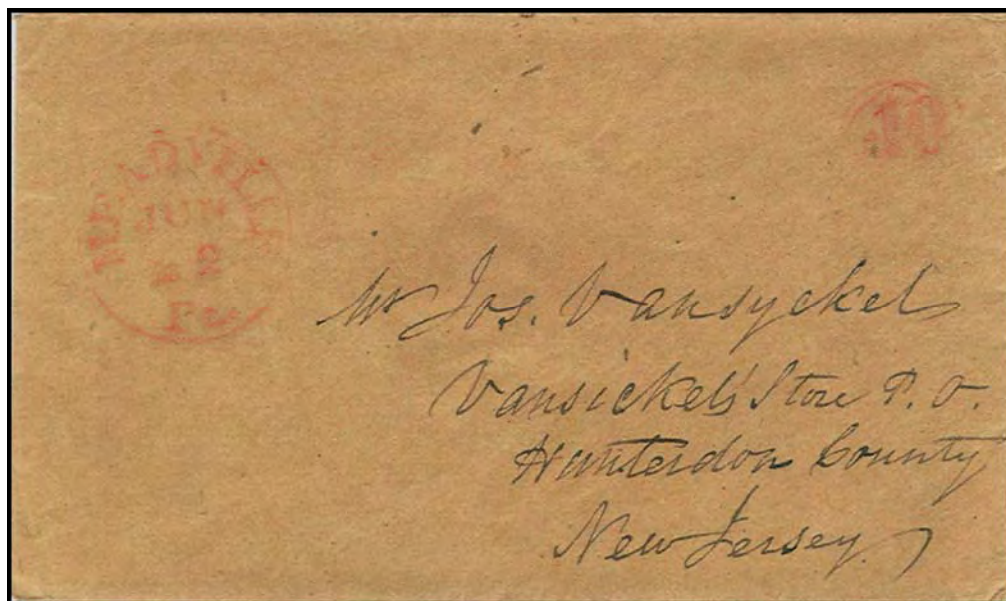 MEADVILLE
JUN
2
Pa.
10
Mr Jos. Vansyckel
Vansickel's Store P.O.
Hunterdon County
New Jersey